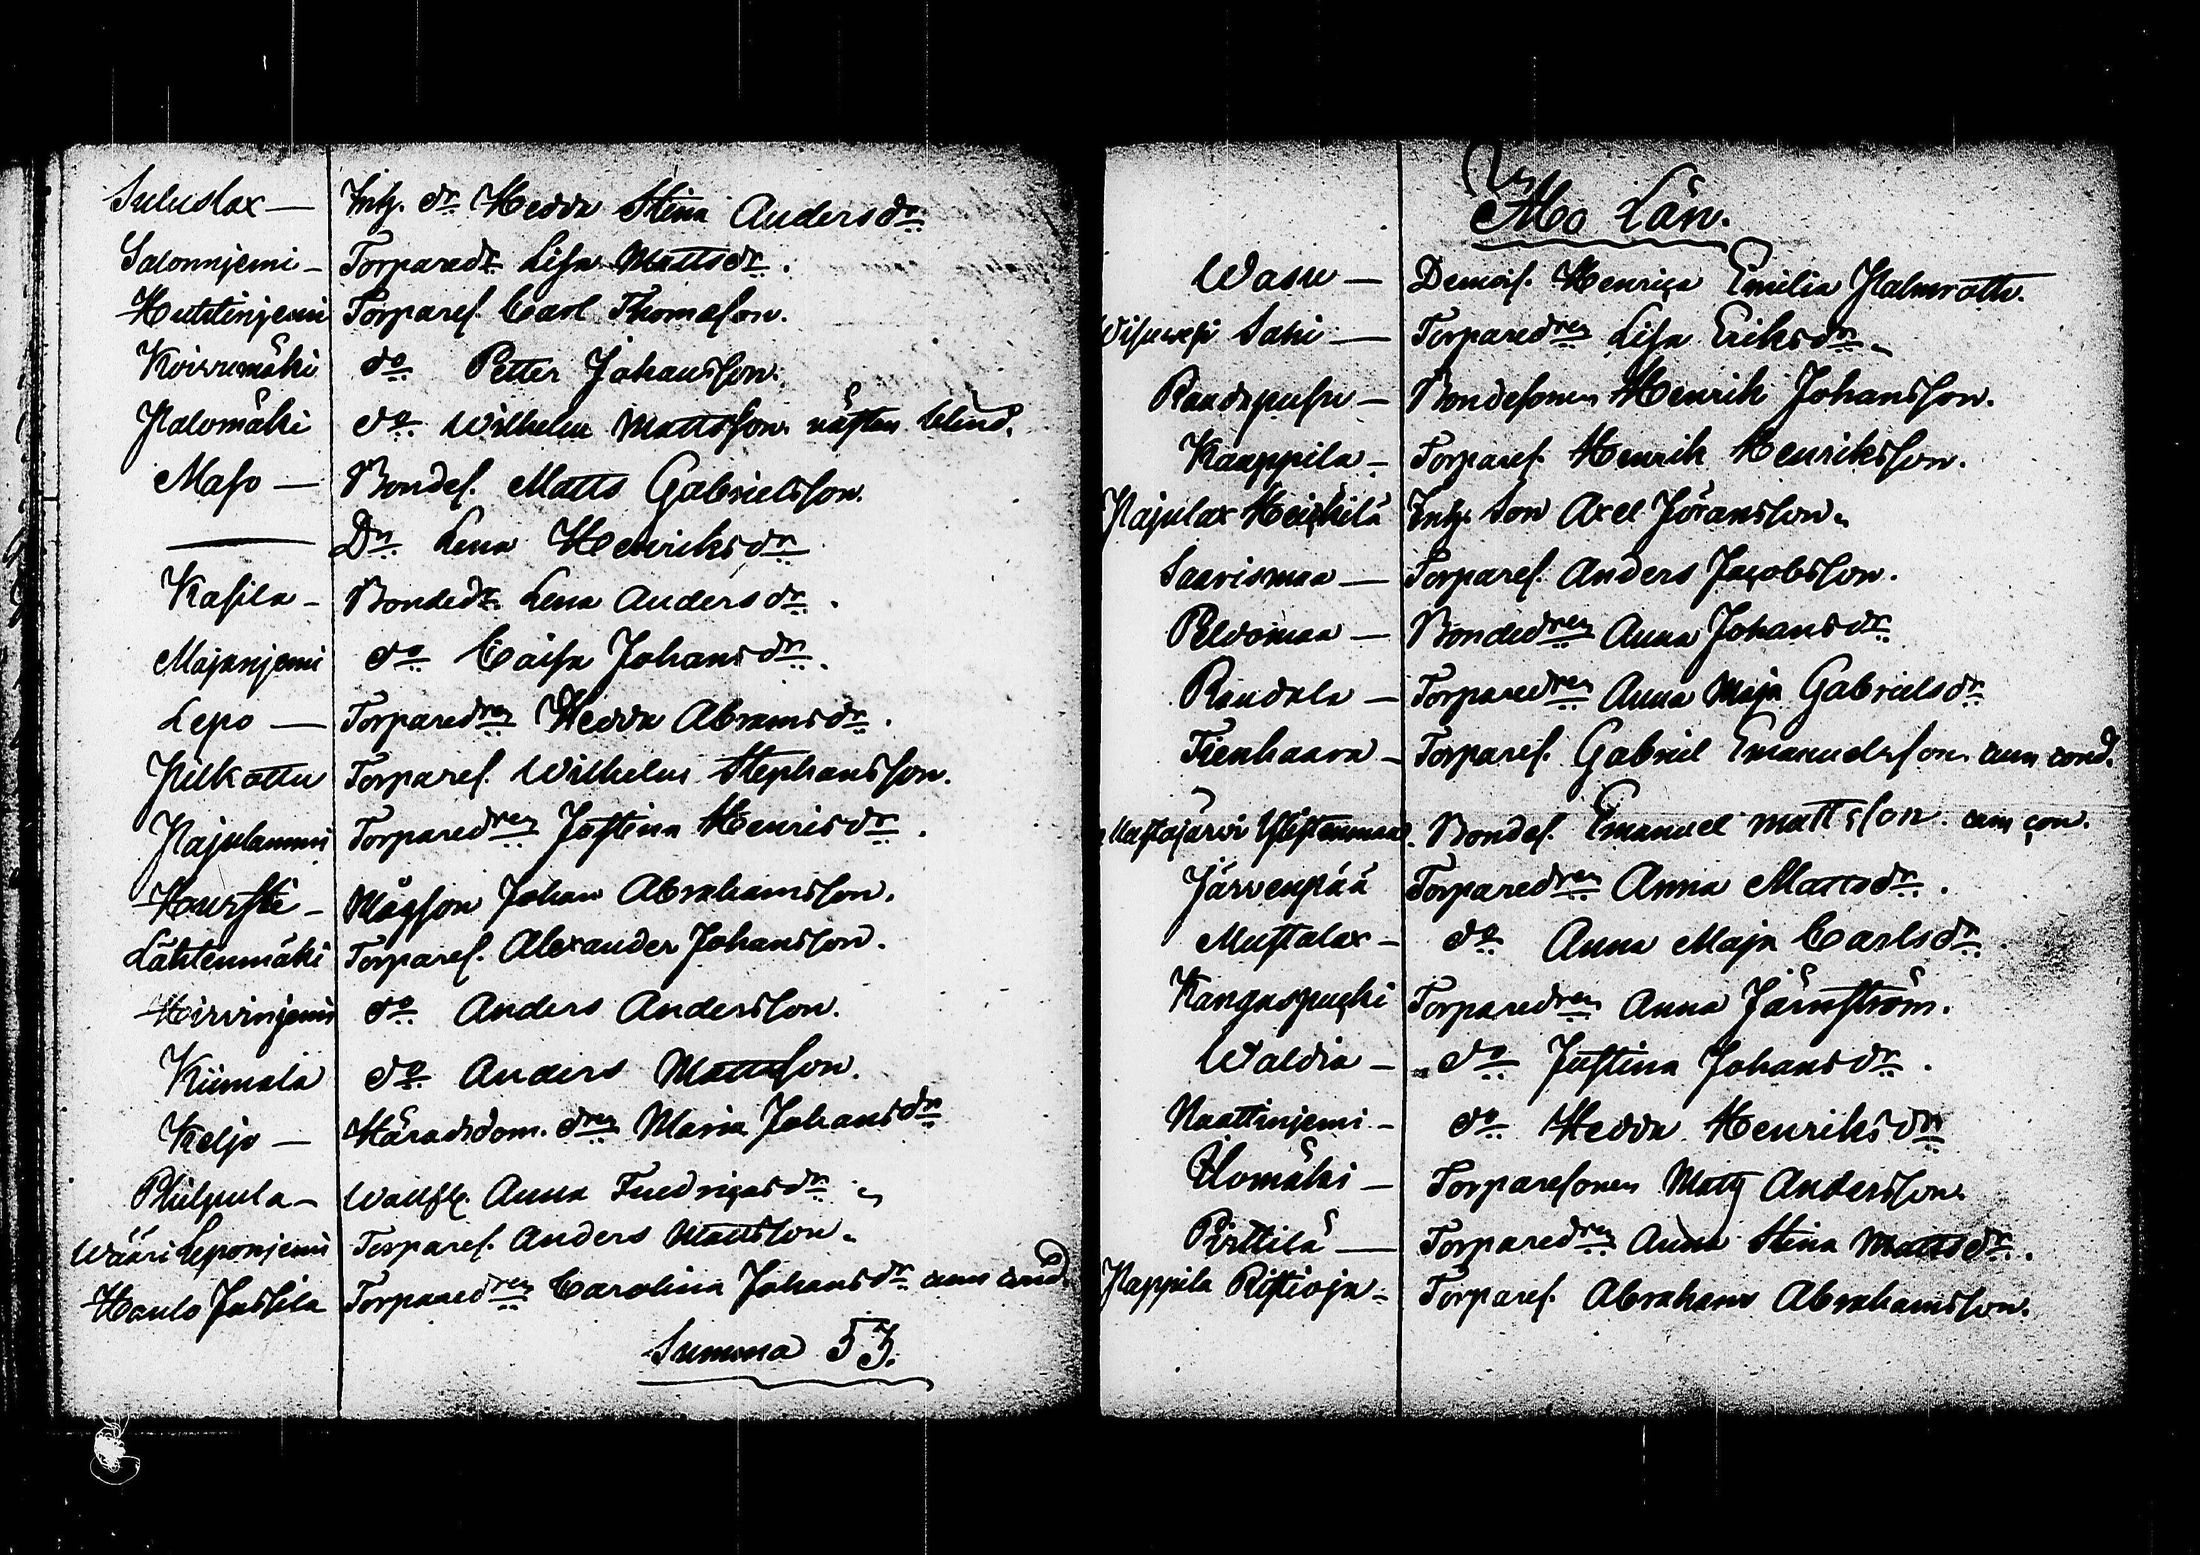 Suluslax — Inh. dr. Hedda Stina Andersdr.
Salonnjemi — Torparedr. Lisa Mattsdr.
Huttinjemi Torpares. Carl Thomasson.
Koivumäki do Petter Johansson.
Palomäki do Wilhelm Mattsson nästan blind.
Maso — Bondes. Matts Gabrielsson.
— Dr. Lena Henriksdr.
Kasila — Bondedr. Lena Andersdr.
Majanjemi do Caisa Johansdr.
Lepo — Torparedren Hedda Abramsdr.
Pilkattu Torpares. Wilhelm Stephansson.
Pajulammi Torparedren Justina Henrisdr.
Hursti — Mågson Johan Abrahamsson.
Lähtenmäki Torpares. Alexander Johansson.
Hirvinjemi do Anders Andersson.
Kiimala do Anders Mattsson.
Keljo — Häradsdom. dren Maria Johansdr
Philpula — Anna Fredricasdr
Wääri Leponjemi Torpares. Anders Mattsson.
Haulo Jussila Torparedren Carolina Johansdr cum cond.
Summa 53.
Mo Län.
Wasu — Demois. Henrica Emilia Palmroth.
Saki — Torparedren Lisa Eriksdr
Bondesonen Henrik Johansson.
Kaappila — Torpares. Henrik Henriksson.
Pajulax Heickilä Inh. Son Axel Jöransson.
Saarismaa — Torpares. Anders Jacobsson.
Peldomaa — Bondedren Anna Johansdr
Randala — Torparedren Anna Maja Gabrielsdr
Tienhaara — Torpares. Gabriel Emanuelsson cum cond.
Mustajärvi Bondes. Emanuel Mattsson. cum con.
Järvenpää Torparedren Anna Mattsdr.
Mustalax — do Anna Maja Carlsdr.
Kangaspuski Torparedren Anna Järnström.
Waldia — do Justina Johansdr.
Naattinjemi — do Hedda Henriksdr
Ilomäki — Torparesonen Matts Andersson.
Pirttilä — Torparedren Anna Stina Mattsdr.
Pappila Ristioja — Torpares. Abraham Abrahamsson.